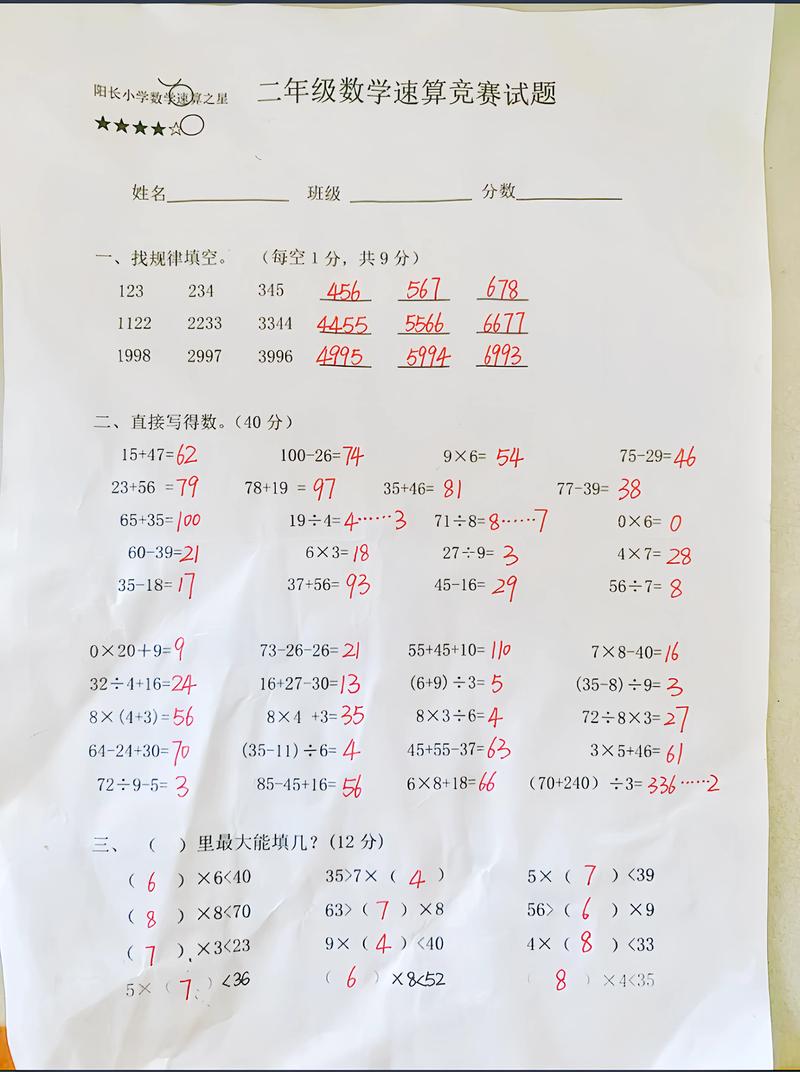 阳长小学数学速算之星
★★★★☆
二年级数学速算竞赛试题
姓名 班级 分数
一、找规律填空。 （每空1分，共9分）
123 234 345 456 567 678
1122 2233 3344 4455 5566 6677
1998 2997 3996 4995 5994 6993
二、直接写得数。（40分）
15+47=62 100-26=74 9×6=54 75-29=46
23+56 =79 78+19 =97 35+46=81 77-39=38
65+35=100 19÷4=4……3 71÷8=8……7 0×6=0
60-39=21 6×3=18 27÷9=3 4×7=28
35-18=17 37+56=93 45-16=29 56÷7=8
0×20+9=9 73-26-26=21 55+45+10=110 7×8-40=16
32÷4+16=24 16+27-30=13 (6+9)÷3=5 (35-8)÷9=3
8×(4+3)=56 8×4 +3=35 8×3÷6=4 72÷8×3=27
64-24+30=70 (35-11)÷6=4 45+55-37=63 3×5+46=61
72÷9-5=3 85-45+16=56 6×8+18=66 （70+240）÷3=336……2
三、（ ）里最大能填几？(12分)
（6）×6<40 35>7×（4） 5×（7）<39
（8）×8<70 63>（7）×8 56>（6）×9
（7）×3<23 9×（4）<40 4×（8）<33
5×（7）<36 （6）×8<52 （8）×4<35